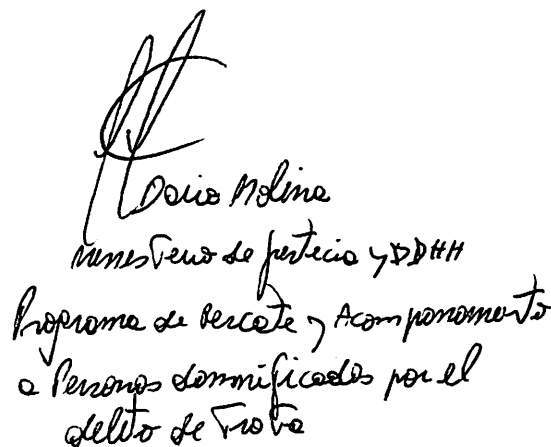 Dario Molina
ministerio de justicia y DDHH
Programa de Rescate y Acompañamiento
a Personas damnificadas por el
delito de Trata